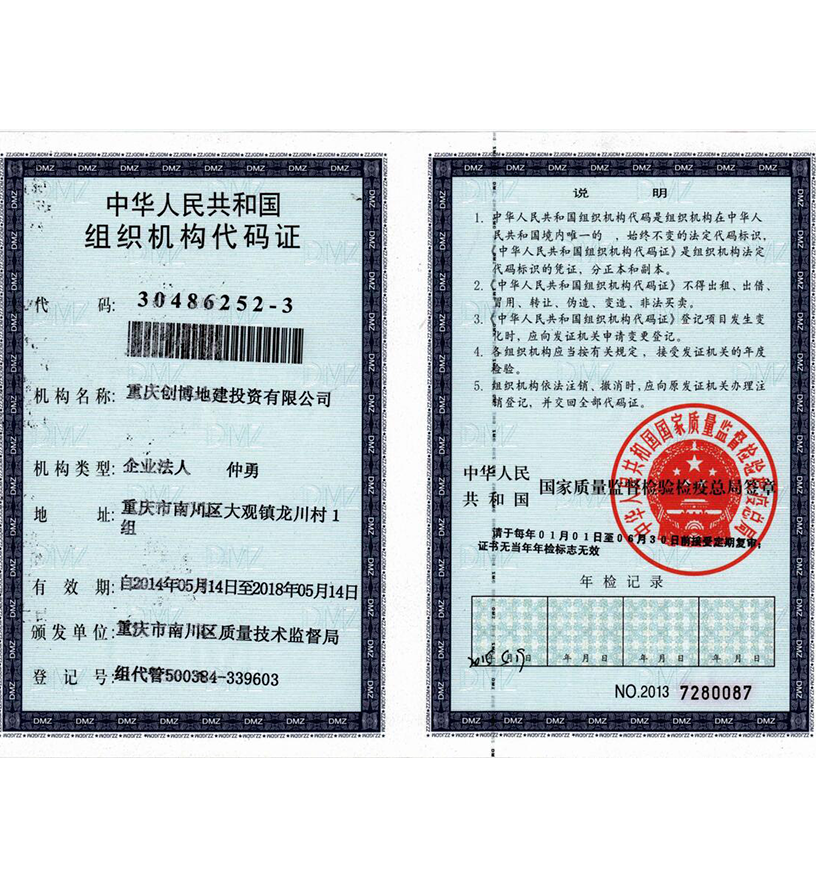 中华人民共和国
组织机构代码证
代 码: 30486252-3
机构名称: 重庆创博地建投资有限公司
机构类型: 企业法人 仲勇
地 址: 重庆市南川区大观镇龙川村1
组
有 效 期: 自2014年05月14日至2018年05月14日
颁发单位: 重庆市南川区质量技术监督局
登 记 号: 组代管500384-339603
说 明
1. 中华人民共和国组织机构代码是组织机构在中华人
民共和国境内唯一的 、始终不变的法定代码标识，
《中华人民共和国组织机构代码证》是组织机构法定
代码标识的凭证，分正本和副本。
2.《中华人民共和国组织机构代码证》不得出租、出借、
冒用、转让、伪造、变造、非法买卖。
3.《中华人民共和国组织机构代码证》登记项目发生变
化时，应向发证机关申请变更登记。
4. 各组织机构应当按有关规定，接受发证机关的年度
检验。
5. 组织机构依法注销、撤消时，应向原发证机关办理注
销登记，并交回全部代码证。
中华人民共和国国家质量监督检验检疫总局
中华人民
共和国 国家质量监督检验检疫总局签章
请于每年01月01日至06月30日前接受定期复审;
证书无当年年检标志无效
年检记录
日 年 月 日 年 月 日 年 月 日
NO.2013 7280087